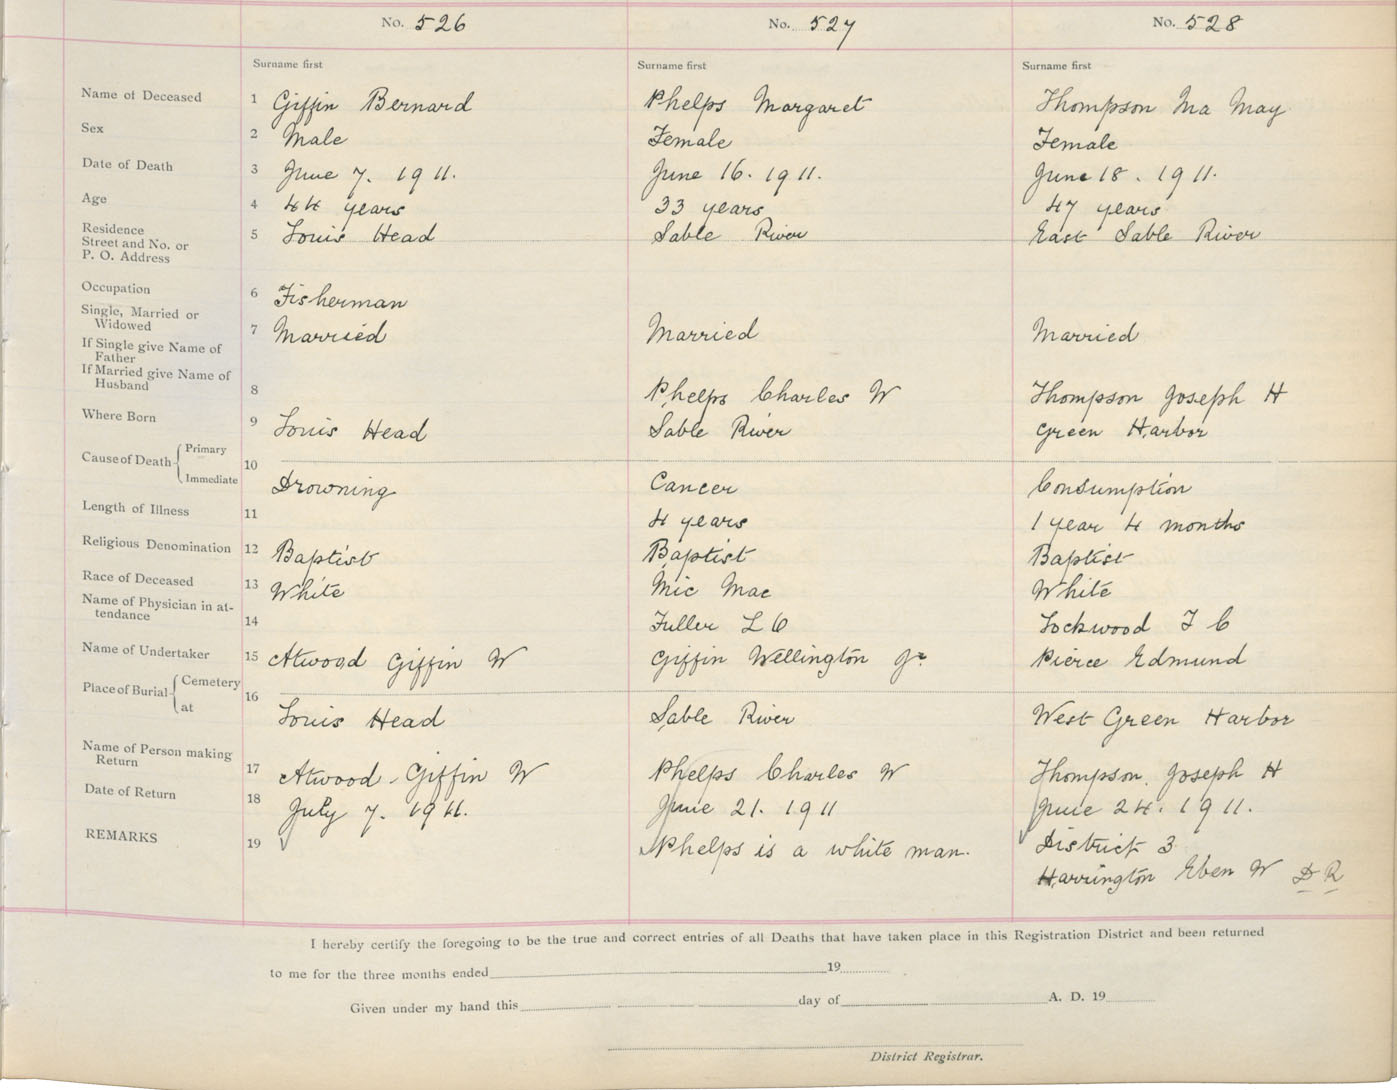 No. 526 No. 527 No. 528
Surname first Surname first Surname first
Name of Deceased 1 Giffin Bernard Phelps Margaret Thompson Ina May
Sex 2 Male Female Female
Date of Death 3 June 7. 1911. June 16. 1911. June 18. 1911.
Age 4 44 years 33 years 47 years
Residence
Street and No. or 5 Louis Head Sable River East Sable River
P. O. Address
Occupation 6 Fisherman
Single, Married or
Widowed 7 Married Married Married
If Single give Name of
Father
If Married give Name of
Husband 8 Phelps Charles W Thompson Joseph H
Where Born 9 Louis Head Sable River Green Harbor
Cause of Death Primary
10
Immediate Drowning Cancer Consumption
Length of Illness 11 4 years 1 year 4 months
Religious Denomination 12 Baptist Baptist Baptist
Race of Deceased 13 White Mic Mac White
Name of Physician in at-
tendance 14 Fuller L O Lockwood T C
Name of Undertaker 15 Atwood Giffin W Giffin Wellington Jr Pierce Edmund
Place of Burial Cemetery
16
at Louis Head Sable River West Green Harbor
Name of Person making
Return 17 Atwood Giffin W Phelps Charles W Thompson Joseph H
Date of Return 18 July 7. 1911. June 21. 1911 June 24. 1911.
REMARKS 19 Phelps is a white man. District 3
Harrington Eben W D R
I hereby certify the foregoing to be the true and correct entries of all Deaths that have taken place in this Registration District and been returned
to me for the three months ended 19
Given under my hand this day of A. D. 19
District Registrar.